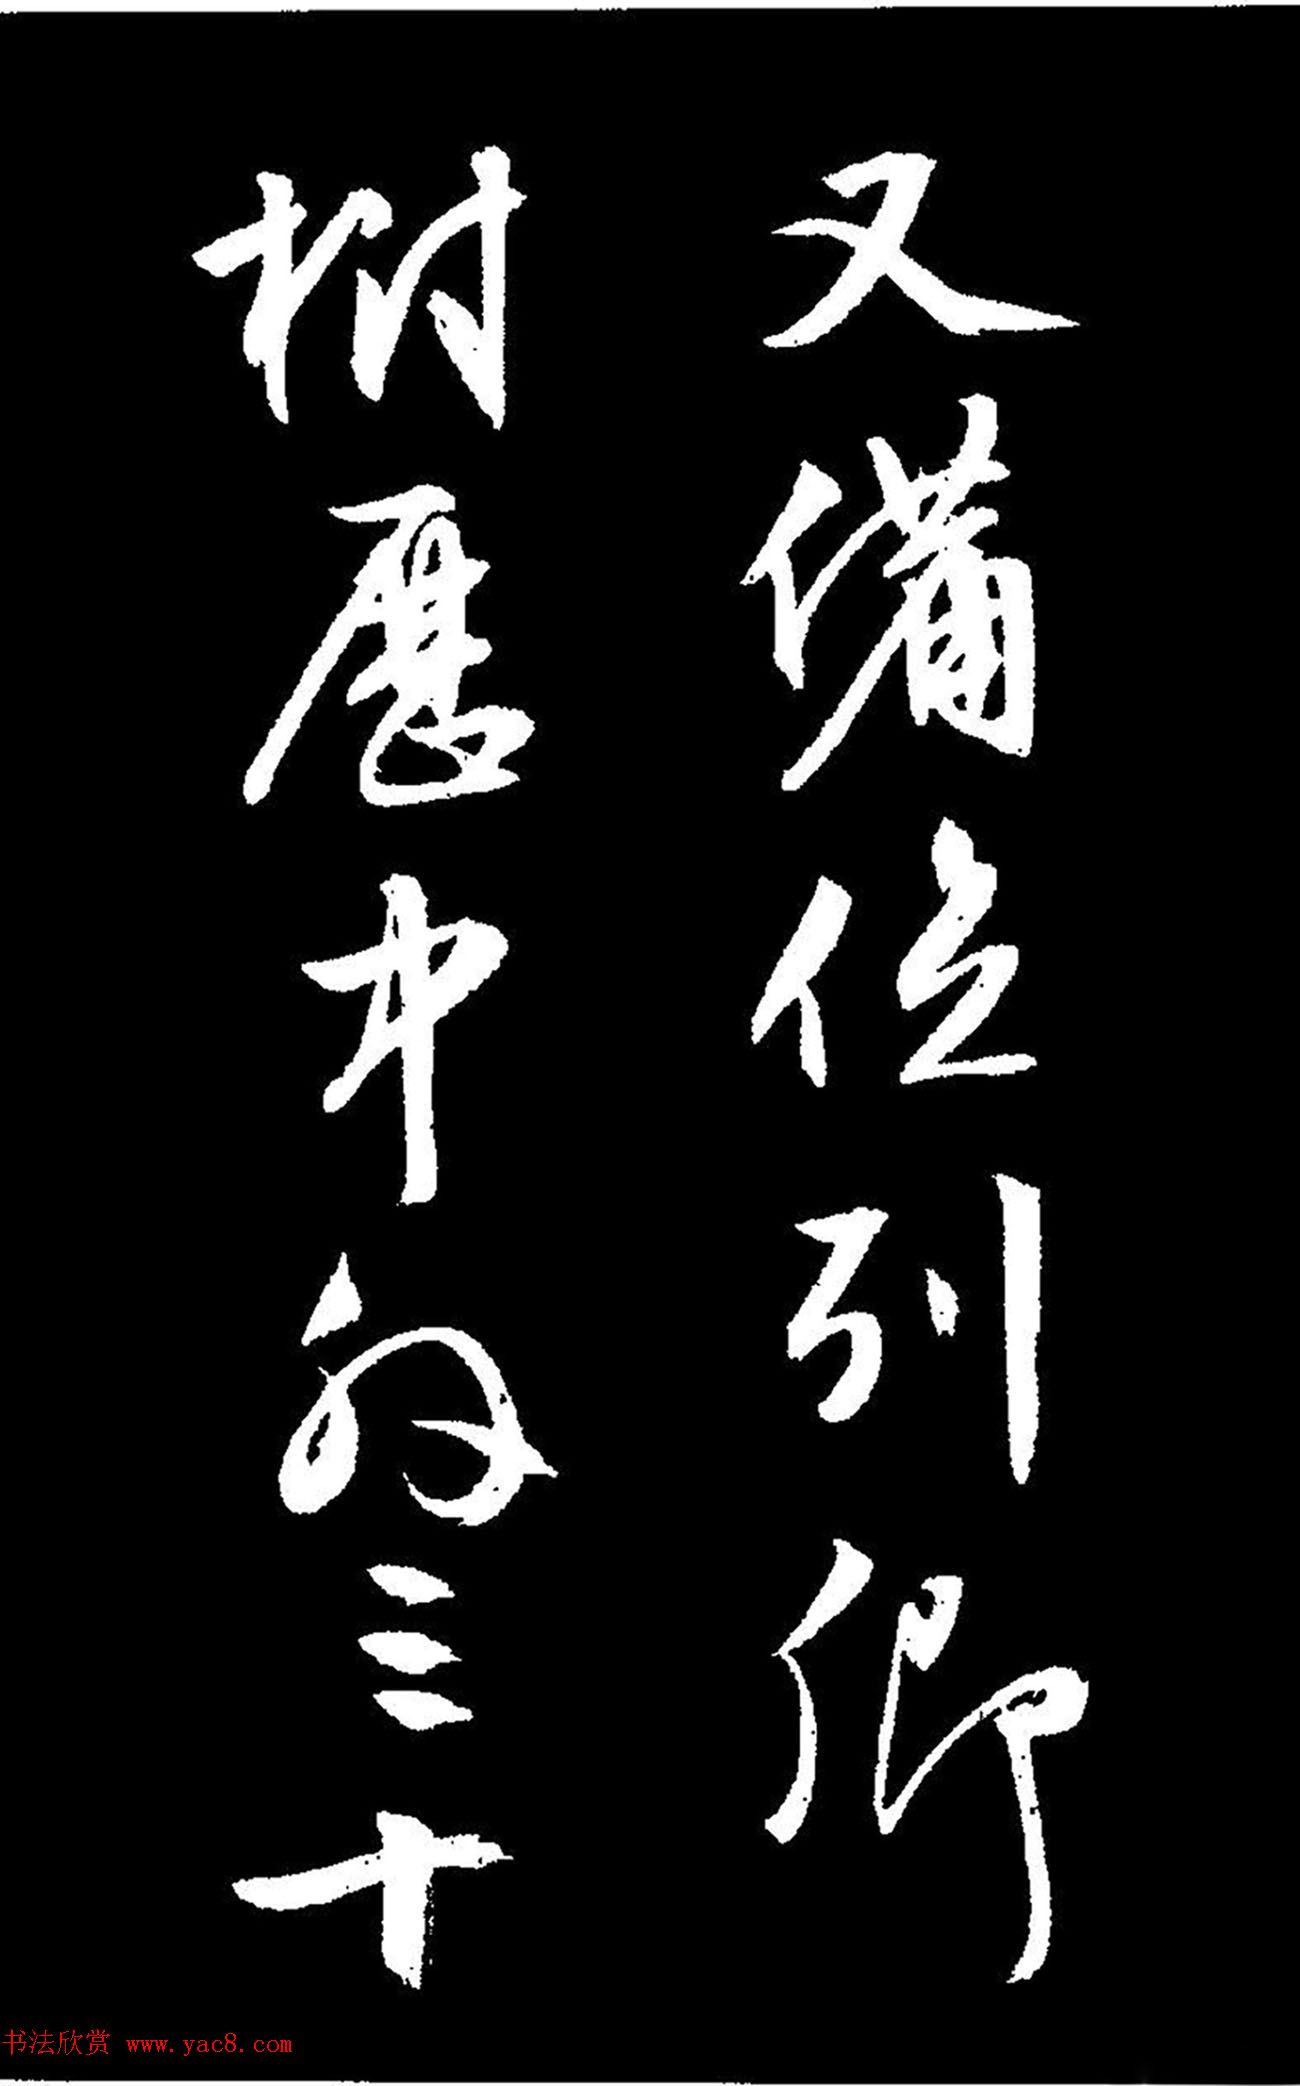 又備位列卿
歷中三十
书法欣赏 www.yac8.com